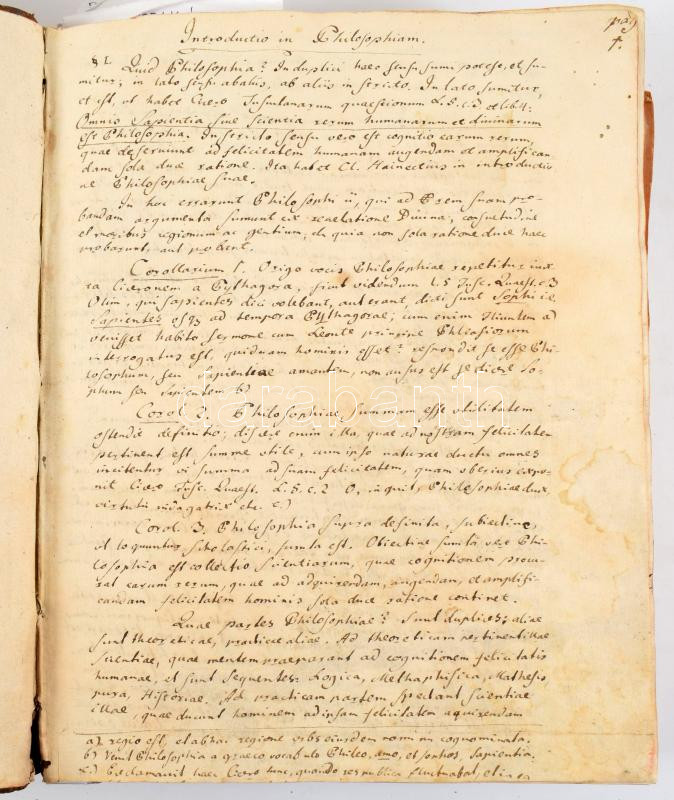 pag
1.
Introductio in Philosophiam.
§ 1. Quid Philosophia? In duplici haec sensu sumi potest, et su-
mitur; in lato sensu ab aliis, ab aliis in stricto. In lato sumitur,
et est, ut habet Cicero Tusculanarum quaestionum L. 5. c. 3 et lib 4:
Omnis Sapientia sive scientia rerum humanarum et divinarum
est Philosophia. In stricto sensu vero est cognitio earum rerum,
quae deserviunt ad felicitatem humanam augendam et amplifican
dam sola duce ratione. Ita habet Cl. Hainectius in introductio
ne Philosophiae suae.
In hoc errarunt Philosophi ii, qui ad Rem suam pro-
bandam argumenta sumunt ex revelatione Divina, consuetudine
et moribus regionum ac gentium, quia non sola ratione duce haec
probarunt, aut probent.
Corollarium 1. Origo vocis Philosophiae repetitur iux
ta Ciceronem a Pythagora, sicut videndum L 5 Tusc. Quaest. c 3
Olim, qui sapientes dici volebant, aut erant, dicti sunt Sophi i.e.
Sapientes usq ad tempora Pythagorae; cum enim Phliuntem ad
venisset habito sermone cum Leonte principe Phliasiorum
interrogatus est, quidnam hominis esset? respondit se esse Phi-
losophum, seu sapientiae amantem, non ausus est se dicere So-
phum seu sapientem b)
Corol. 2. Philosophiae summam esse utilitatem
ostendit definitio; discere enim illa, quae ad nostram felicitatem
pertinent est summe utile, cum ipso naturae ductu omnes
incitentur vi summa ad suam felicitatem, quam uberius expo-
nit Cicero Tusc. Quaest. L. 5. c. 2 O, inquit, Philosophia dux,
virtutis indagatrix etc. c)
Corol. 3. Philosophia supra definita, subiective,
ut loquuntur scholastici, sumta est. Obiective sumta vero Phi-
losophia est collectio scientiarum, quae cognitionem procu-
rat earum rerum, quae ad adquirendam, augendam, et amplifi-
candam felicitatem hominis sola duce ratione continet.
Quae partes Philosophiae? Sunt duplices; aliae
sunt theoreticae, practicae aliae. Ad theoreticam pertinent illae
scientiae, quae mentem praeparant ad cognitionem felicitatis
humanae, et sunt sequentes: Logica, Methaphisica, Mathesis
pura, Historiae. Ad practicam partem spectant scientiae
illae, quae ducunt hominem ad ipsam felicitatem aquirendam
a) regio est, et ab hac regione urbs eiusdem nominis cognominata.
b) Venit Philosophia a graeco vocabulo Phileo, amo, et sophos, sapientia.
c) Exclamavit haec Cicero tunc, quando respublica fluctuabat, et
darabanth